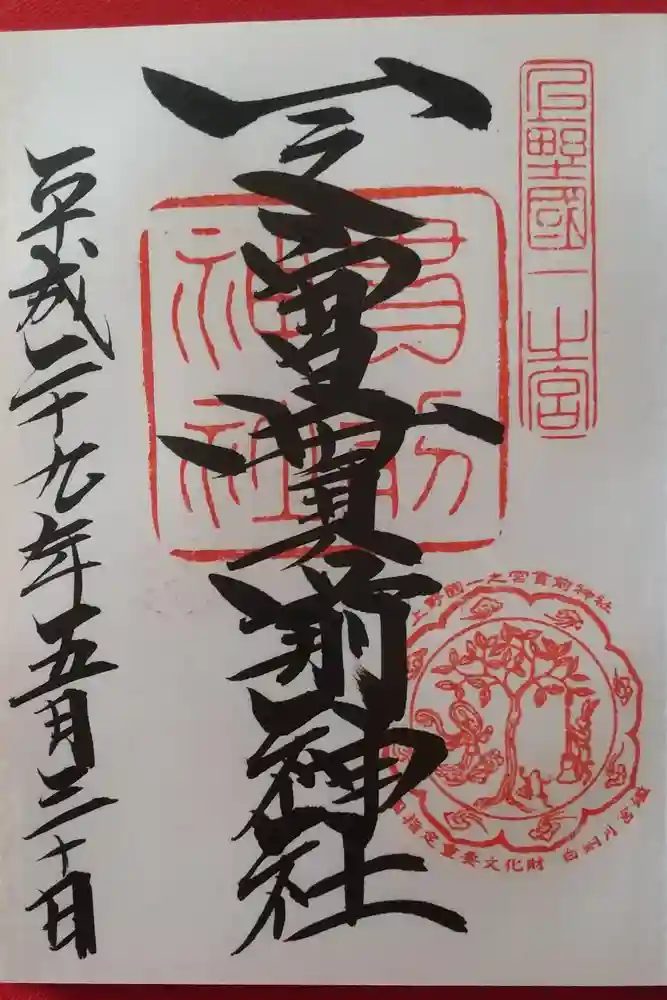 上野國一之宮
一之宮貫前神社
貫前
神社
平成二十九年五月三十日
上野國一之宮貫前神社
国指定重要文化財 白銅月宮鑑